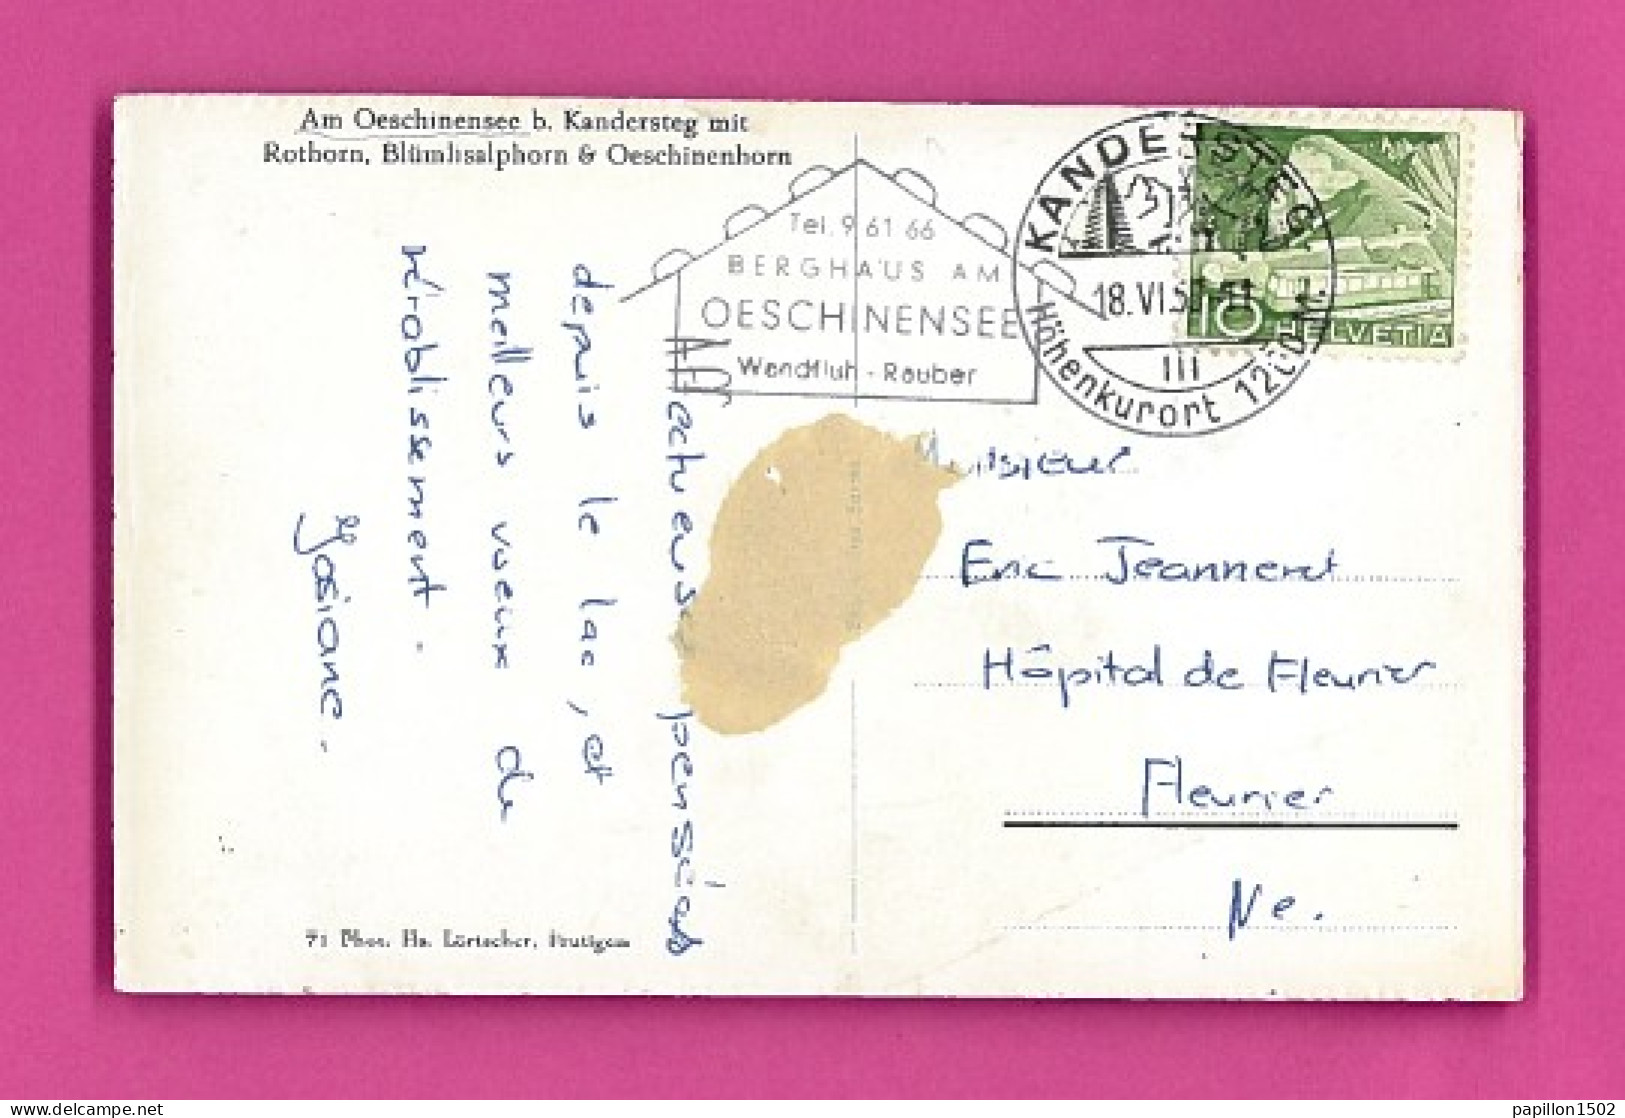 Am Oeschinensee b. Kandersteg mit
Rothorn, Blümlisalphorn & Oeschinenhorn
Tel. 9 61 66
BERGHAUS AM
OESCHINENSEE
Wandfluh - Rauber
KANDERSTEG
18.VI.5
III
Höhenkurort 1200 M.
10 HELVETIA
Affectueuses pensées
depuis le lac, et
meilleurs voeux de
rétablissement.
Josiane.
Monsieur
Eric Jeanneret
Hôpital de Fleurier
Fleurier
Ne.
71 Phot. Hs. Lörtscher, Frutigen
papillon1502